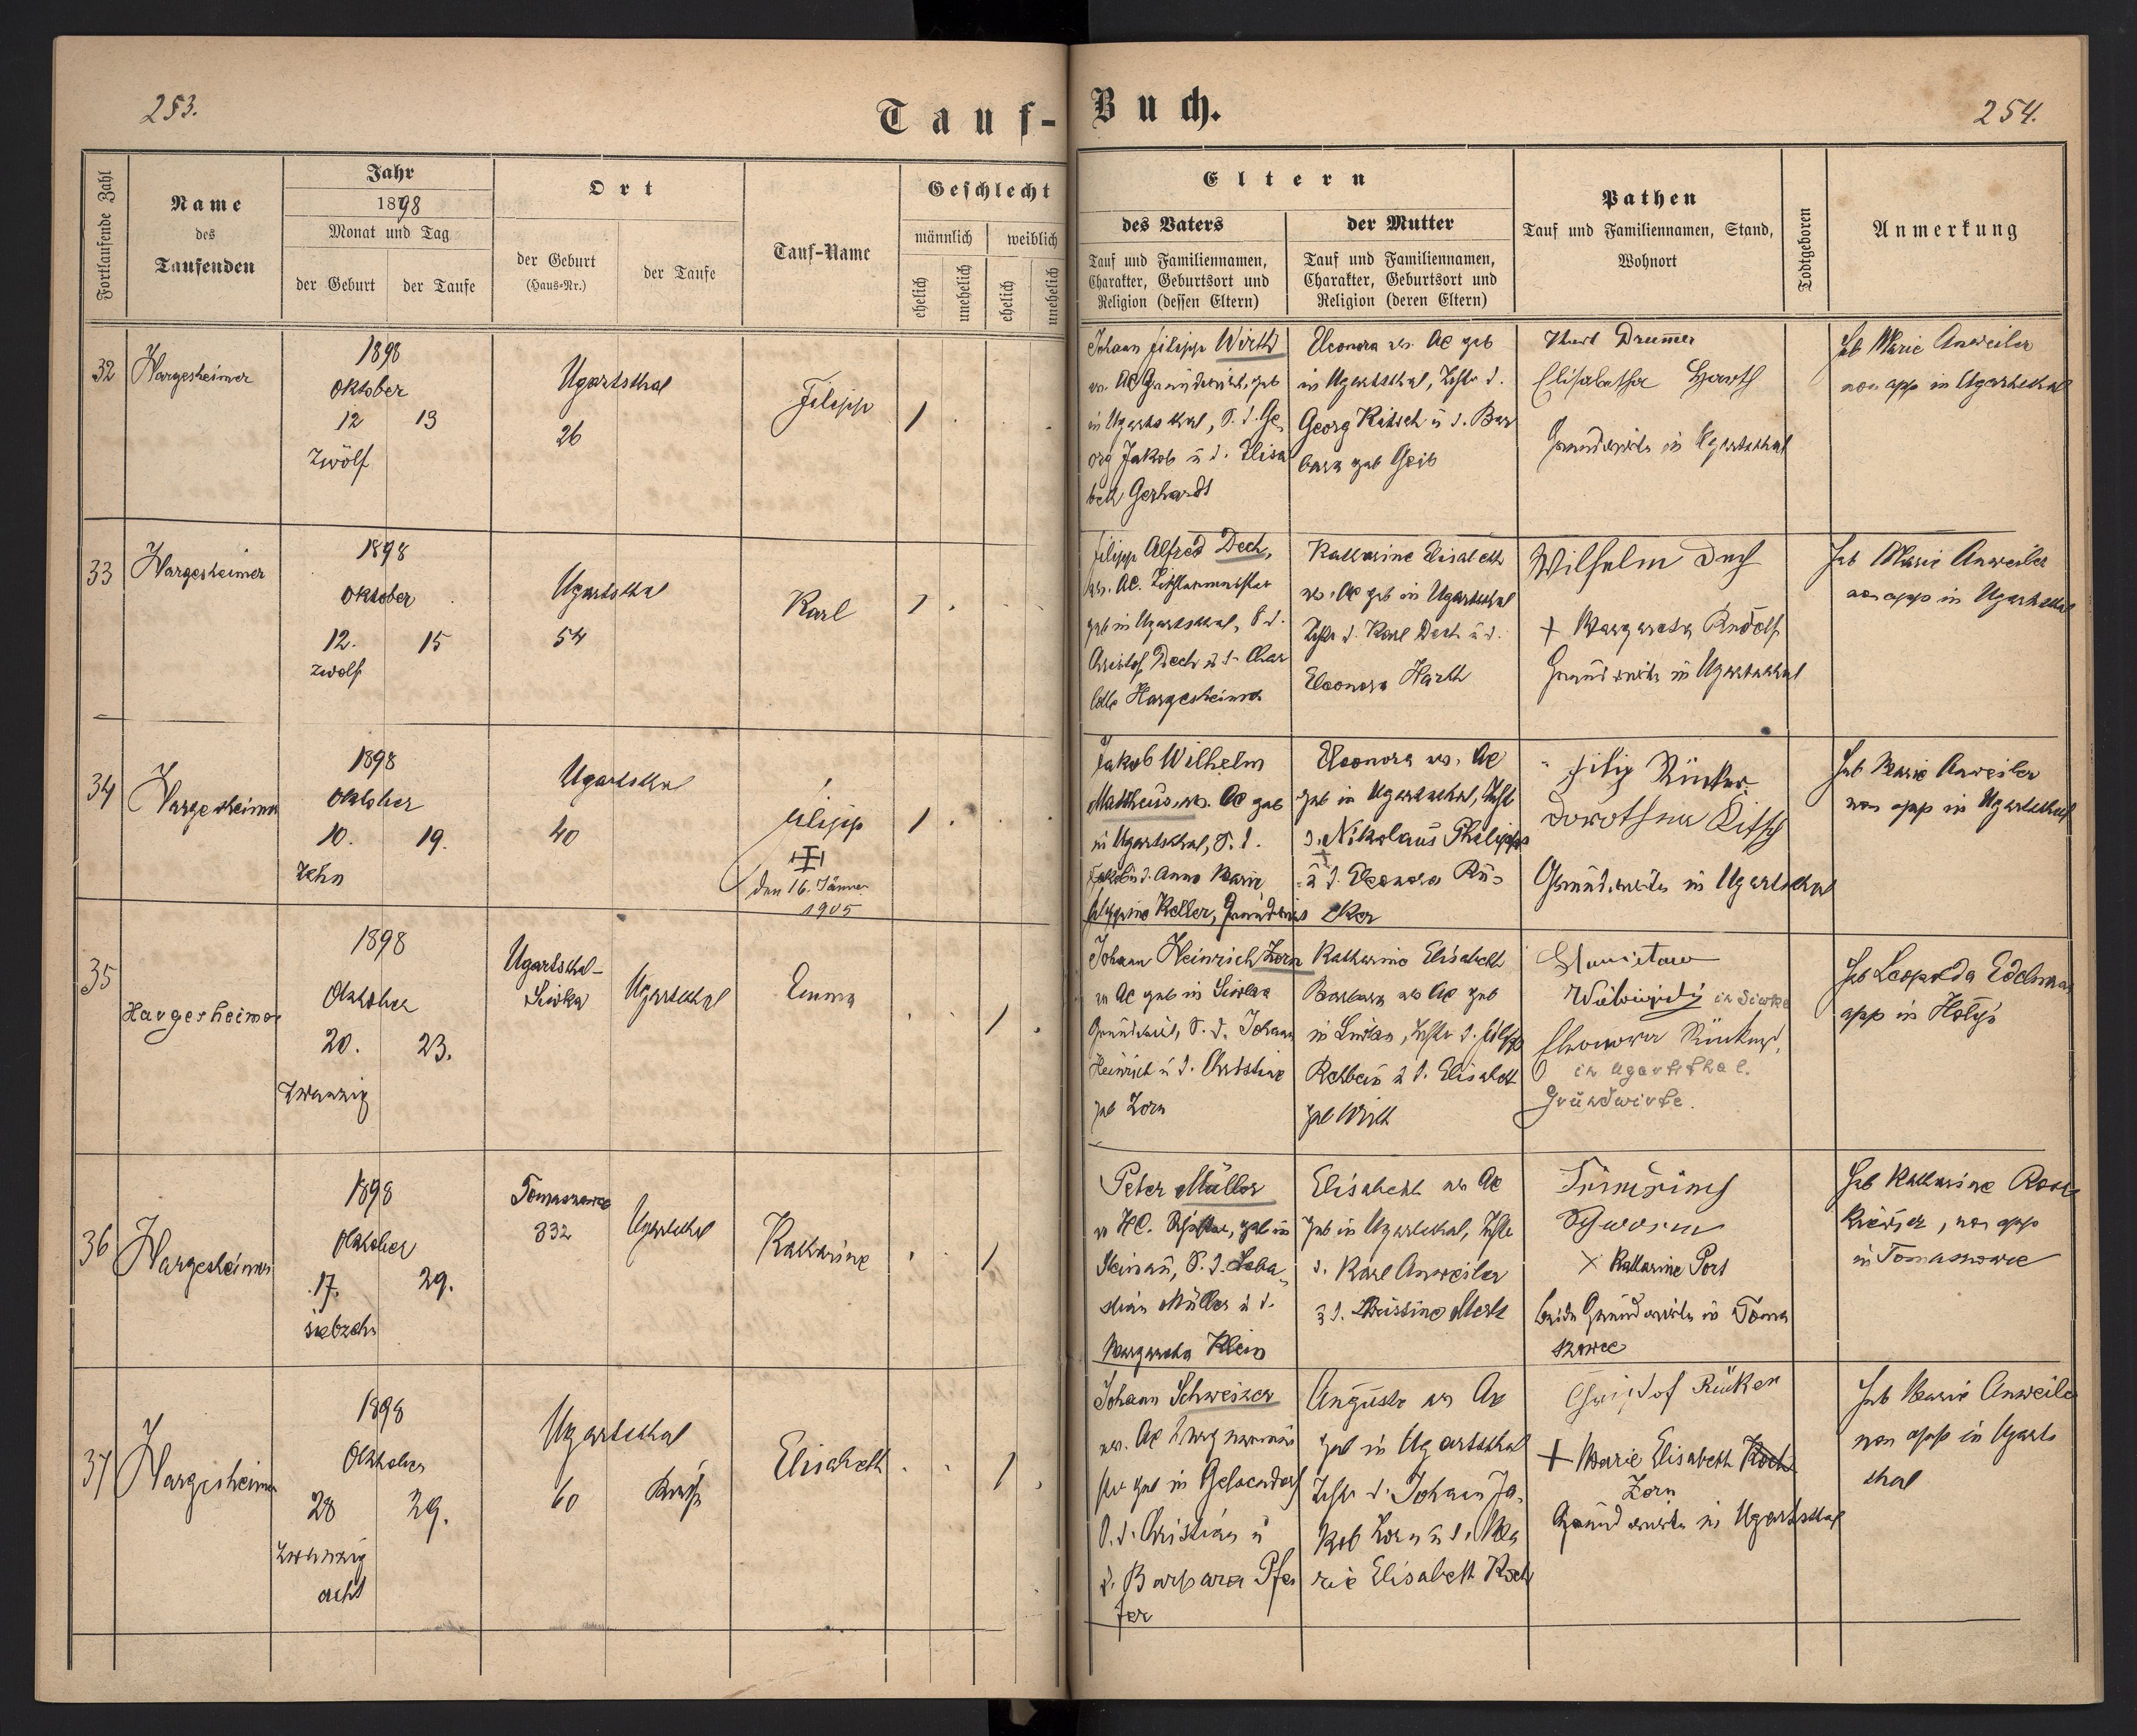 253.
Tauf-
Buch.
254.
Fortlaufende Zahl
Name
des
Taufenden
Jahr
1898
Monat und Tag
der Geburt
der Taufe
Ort
der Geburt
(Haus-Nr.)
der Taufe
Tauf-Name
Geschlecht
männlich
weiblich
ehelich
unehelich
ehelich
unehelich
Eltern
des Vaters
Tauf und Familiennamen,
Charakter, Geburtsort und
Religion (dessen Eltern)
der Mutter
Tauf und Familiennamen,
Charakter, Geburtsort und
Religion (deren Eltern)
Pathen
Tauf und Familiennamen, Stand,
Wohnort
Todtgeboren
Anmerkung
32
Hargesheimer
1898
Oktober
12
13
Zwölf
Ugartsthal
26
Filipp
1
Johann Filipp Wirth
AC Grundwirth, geb
in Ugartsthal, S. d. Ge-
org Jakob u d. Elisa
beth Gerhardt
Eleonora AC geb
in Ugartsthal, d.
Georg u d. Bar
bara geb Geib
Drummer
Elisabetha Harth
Grundwirte in Ugartsthal
Heb Marie Anweiler
non app in Ugartsthal
33
Hargesheimer
1898
Oktober
12.
15
zwölf
Ugartsthal
54
Karl
1
Filipp Alfred Dech,
AC.
geb in Ugartsthal, S d.
Christof Dech u d. Char
lotte Hargesheimer
Katharine Elisabeth
AC geb in Ugartsthal
d. Karl Dech u d.
Eleonora Harth
Wilhelm Dech
+ Margareta Rudolf
Grundwirte in Ugartsthal
Heb Marie Anweiler
non app in Ugartsthal
34
Hargesheimer
1898
Oktober
10.
19.
Zehn
Ugartsthal
40
Filipp
den 16. Jänner
1905
1
Jakob Wilhelm
Mattheus, AC geb
in Ugartsthal, S. d.
Jakob u d. Anna Marie
Keller, Grundwirt
Eleonora AC
geb in Ugartsthal,
d. Nikolaus Philipps
u d. Eleonora Rü-
cker
Filip Rücker
Dorothea Kitsch
Grundwirte in Ugartsthal
Heb Marie Anweiler
non app in Ugartsthal
35
Hargesheimer
1898
Oktober
20.
23.
Zwanzig
Ugartsthal-
Siwka
Ugartsthal
Emma
1
Johann Heinrich Zorn
AC geb in Siwka
Grundwirt, S. d. Johann
Heinrich u d. Christine
geb Zorn
Katharine Elisabeth
Barbara AC geb
in Siwka, d. Filipp
Rehbein u d. Elisabeth
geb Wirth
in Siwka
Eleonora Rücker,
in Ugartsthal.
Grundwirte.
Heb Leopolda Edelman
app in Hołyń
36
Hargesheimer
1898
Oktober
17.
29.
siebzehn
Tomaszowce
332
Ugartsthal
Katharine
1
Peter Müller
HC. geb in
S. d. Seba-
stian Müller u d.
Margaretha Klein
Elisabeth AC
geb in Ugartsthal,
d. Karl Anweiler
u d. Christine Merk
Schworm
× Katharine Port
beide Grundwirte in Toma
szowce
Heb Katharine
non app
in Tomaszowce
37
Hargesheimer
1898
Oktober
28
29.
zwanzig
acht
Ugartsthal
60
Elisabeth
1
Johann Schweizer
AC
geb in Gelsendorf
S. d. Christian u
d. Barbara Pfei
fer
Auguste AC
geb in Ugartsthal
d. Johann Ja-
kob Zorn u d. Ma
rie Elisabeth Koch
Christof Rücker
+ Marie Elisabeth Koch
Zorn
Grundwirte in Ugartsthal
Heb Marie Anweiler
non app in Ugarts
thal